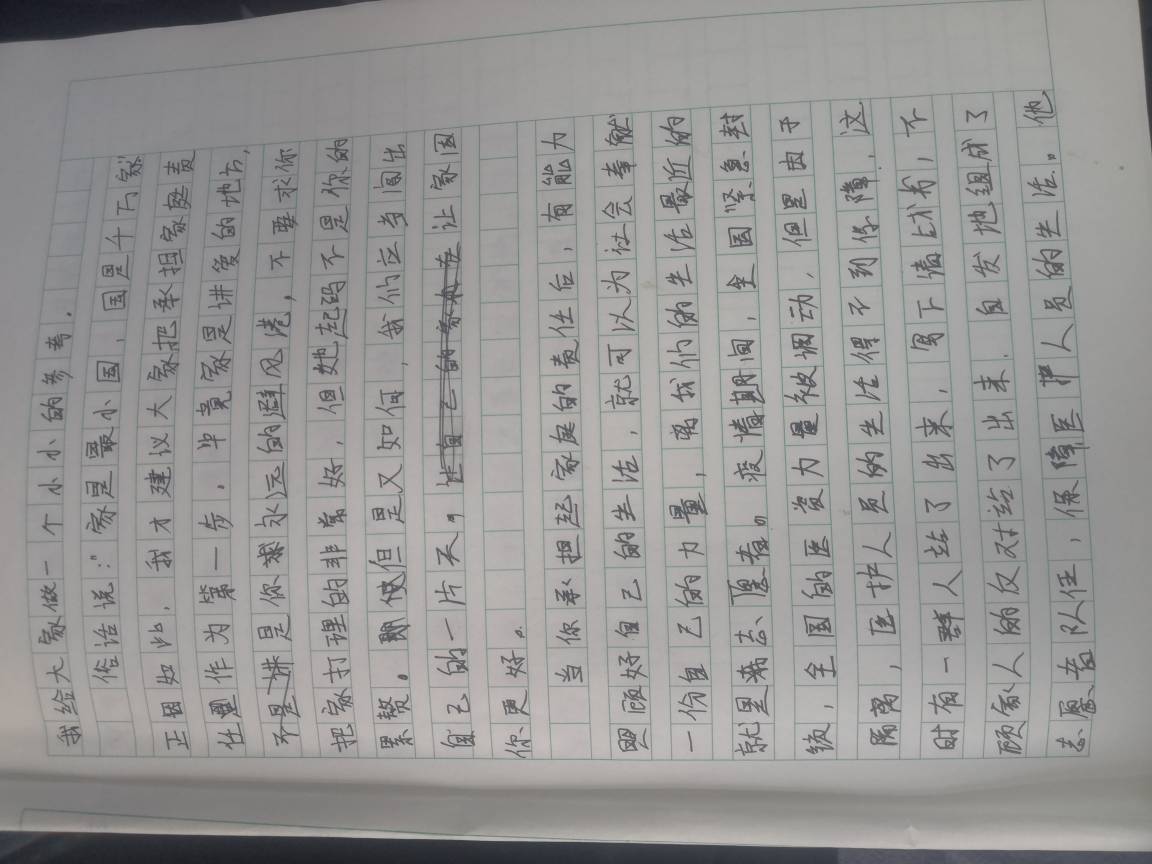 我给大家做一个小小的参考.
俗话说:"家是最小国,国是千万家"
正因如此,我才建议大家把承担家庭责
任里作为第一步。毕竟家是讲爱的地方,
是你永远的避风港,不要求你
把家打理的非常好,但她起码不是你的
累赘。但是又如何,我们应当闯出
自己的一片天。让家因
你更好。
当你承担起家庭的责任后,有能力
照顾好自己的生活,就可以为社会奉献
一份自己的力量,离我们的生活最近的
就是志愿者。疫情期间,全国紧急封
锁,全国的医资力量被调动,但是由于
隔离,医护人员的生活得不到保障,这
时有一群人站了出来,写下请战书,不
顾家人的反对站了出来.自发地组成了
志愿者队伍,保障医护人员的生活。他